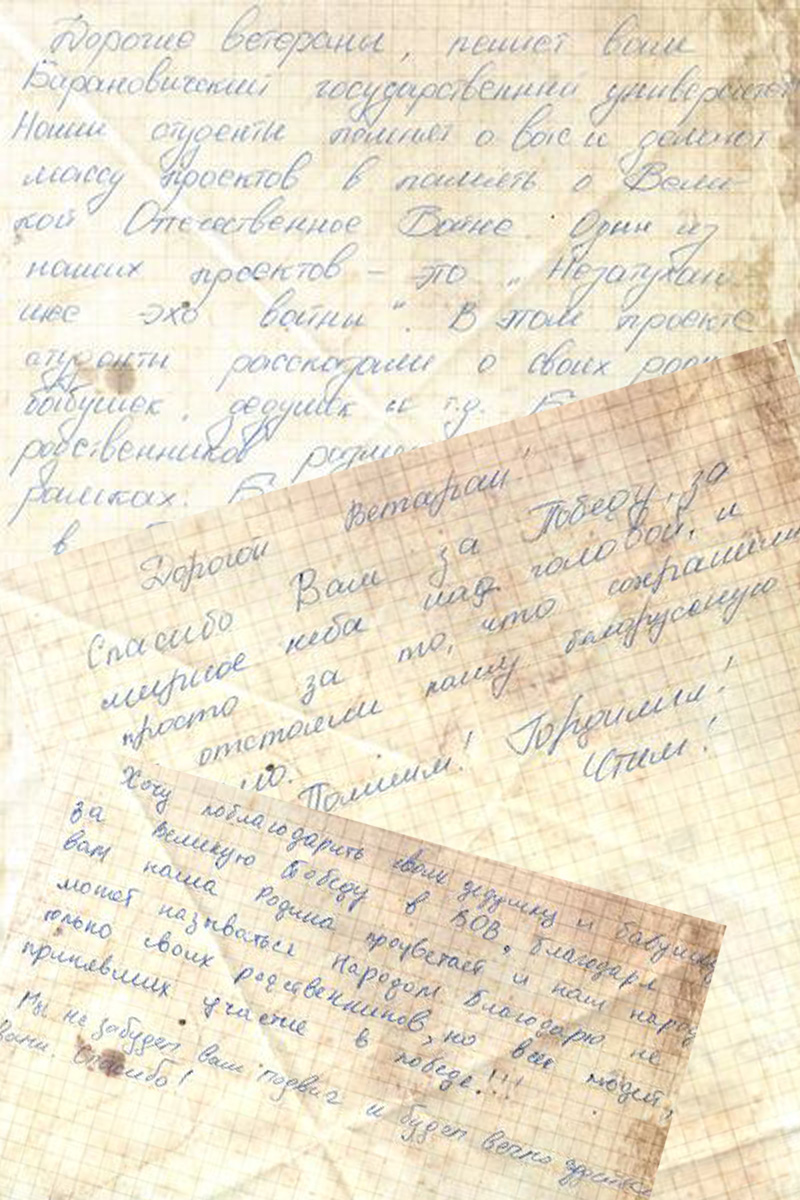 Дорогие ветераны, пешет вам
Барановичский государственный университет
Наши студенты помнят о вас и делают
массу проектов в память о Вели-
кой Отечественное Войне. Один из
наших проектов – это „Незатухаю-
щее эхо войны". В этом проекте
студенты рассказали о своих
бабушек, дедушек и т.д.
родственников
рамках.
в
Дорогой Ветеран!
Спасибо Вам за Победу, за
мирное неба над головой, и
просто за то, что сохранили
отстояли нашу белорусскую
Помним! Гордимся!
Чтим!
Хочу поблагодарить свою дедушку и бабушку
за Великую Победу в ВОВ, благодаря
вам наша Родина процветает и наш народ
может называться Народом Благодарю не
только своих родственников, но всех людей,
принявших участие в победе!!!
Мы не забудем ваш подвиг и будем вечно
Вами. Спасибо!